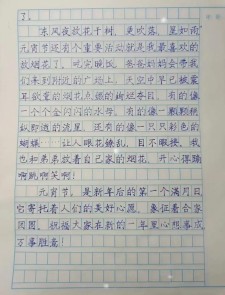 了。
东风夜放花千树，更吹落，星如雨。
元宵节还有个重要活动就是我最喜欢的
放烟花了。吃完晚饭，爸爸妈妈会带我
们来到附近的广场上，天空中早已被爱
耳欲聋的烟花点缀的绚烂夺目。有的像
一个个金闪闪的水母，有的像一颗颗稍
纵即逝的流星，还有的像一只只彩色的
蝴蝶……让人眼花缭乱，目不暇接。我
也和弟弟放着自己家的烟花，开心得蹦
啊跳啊笑啊！
元宵节，是新年后的第一个满月日
它寄托着人们的美好心愿，象征着合家
团圆。祝福大家在新的一年里心想事成
万事胜意！